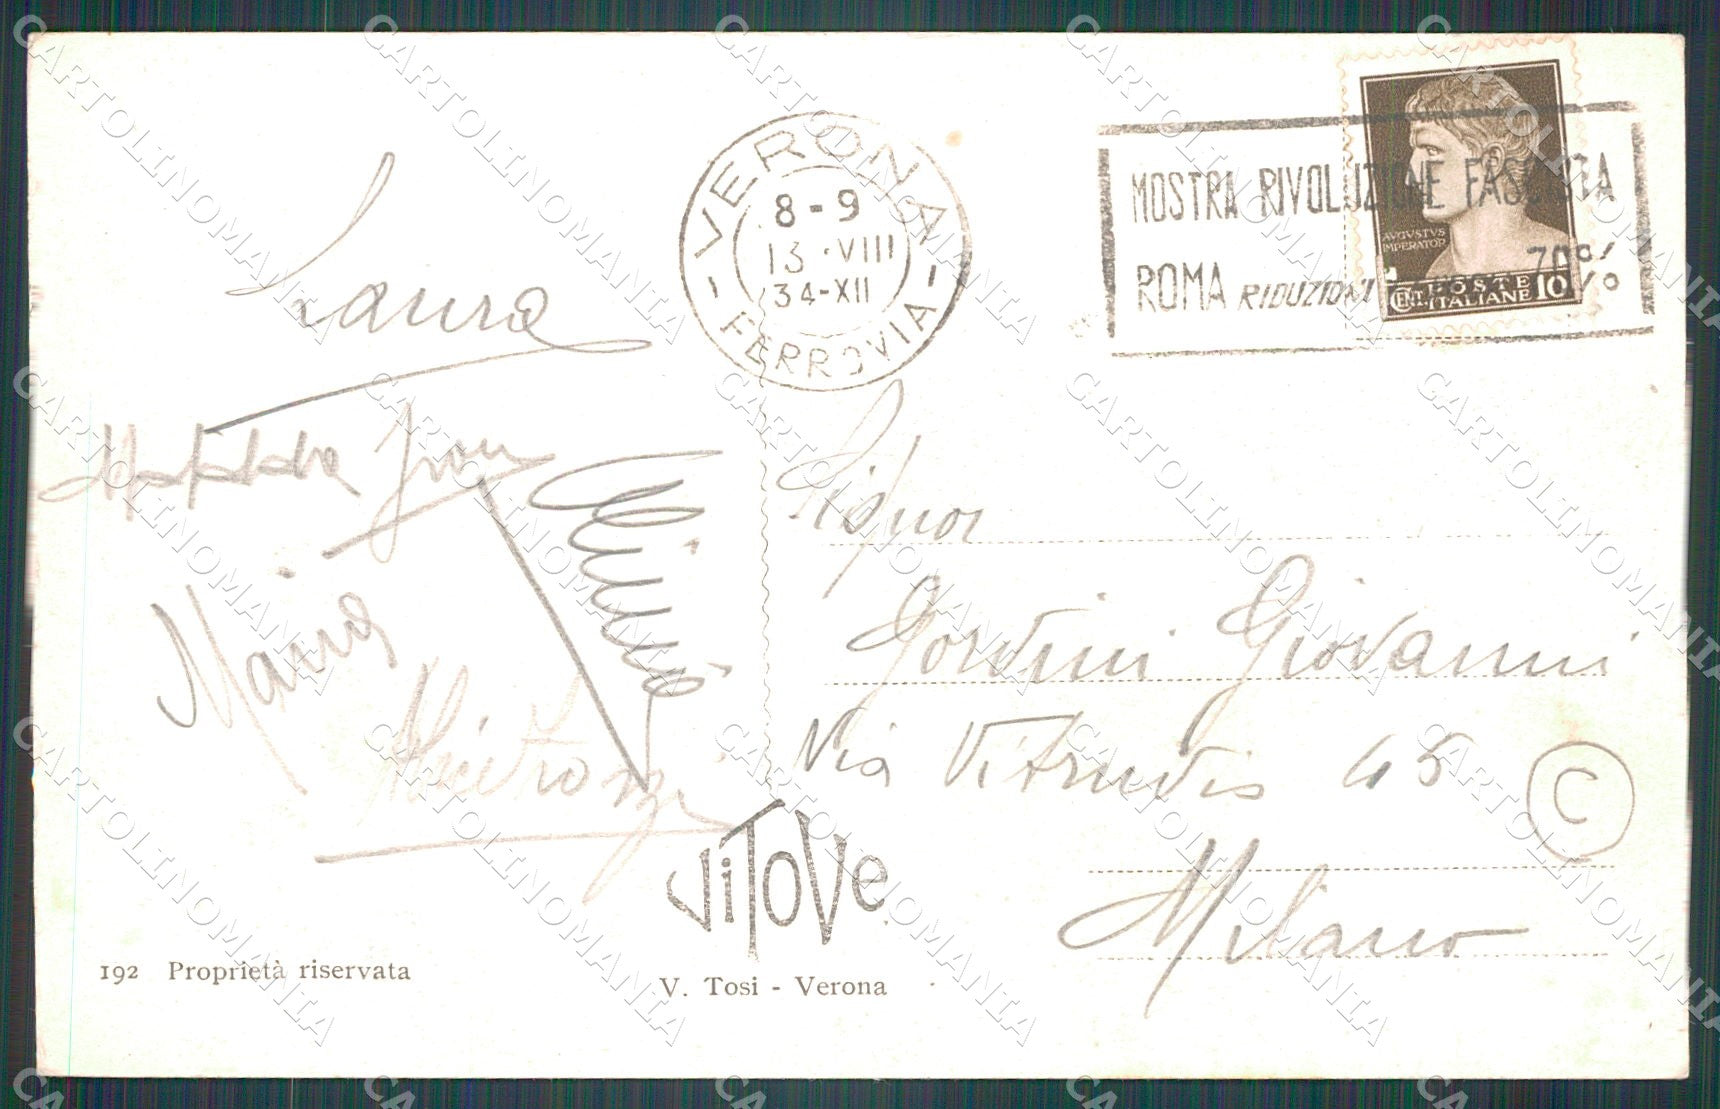 VERONA
8-9
13·VIII
34-XII
FERROVIA
MOSTRA RIVOLUZIONE FASCISTA
ROMA RIDUZIONI 70%
AVGVSTVS
IMPERATOR
CENT. POSTE ITALIANE 10
Laura
Maria
Signor
Gordini Giovanni
Via Vitruvio 45
Milano
C
ViToVe
192 Proprietà riservata
V. Tosi - Verona
CARTOLINOMANIA